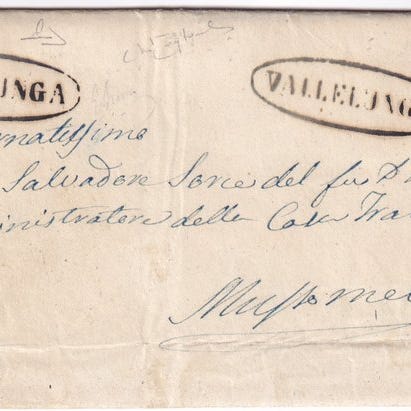 UNGA VALLELUNG
rnatissimo
Salvadore Sorce del fu D
inistratore della Casa Tra
Mussomel